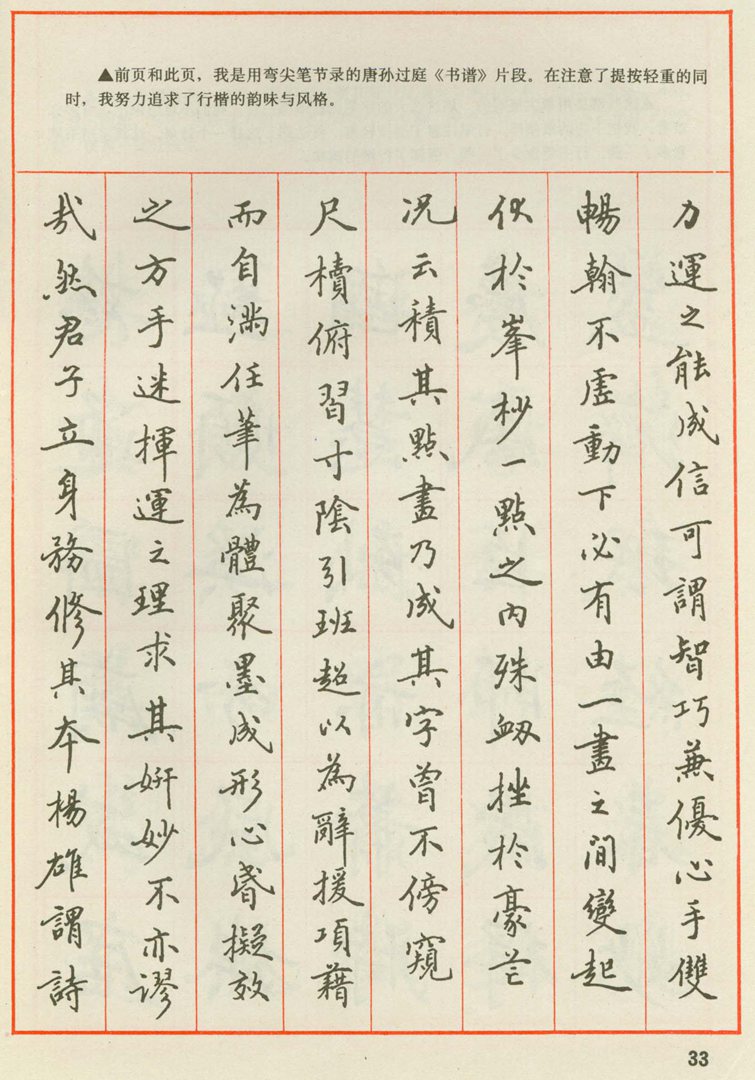 ▲前页和此页，我是用弯尖笔节录的唐孙过庭《书谱》片段。在注意了提按轻重的同
时，我努力追求了行楷的韵味与风格。
力運之能成信可謂智巧兼優心手雙
暢翰不虛動下必有由一畫之間變起
伏於峯杪一點之內殊衂挫於豪芒
况云積其點畫乃成其字曾不傍窺
尺櫝俯習寸陰引班超以為辭援項藉
而自滿任筆為體聚墨成形心昏擬效
之方手迷揮運之理求其妍妙不亦謬
哉然君子立身務修其本楊雄謂詩
33